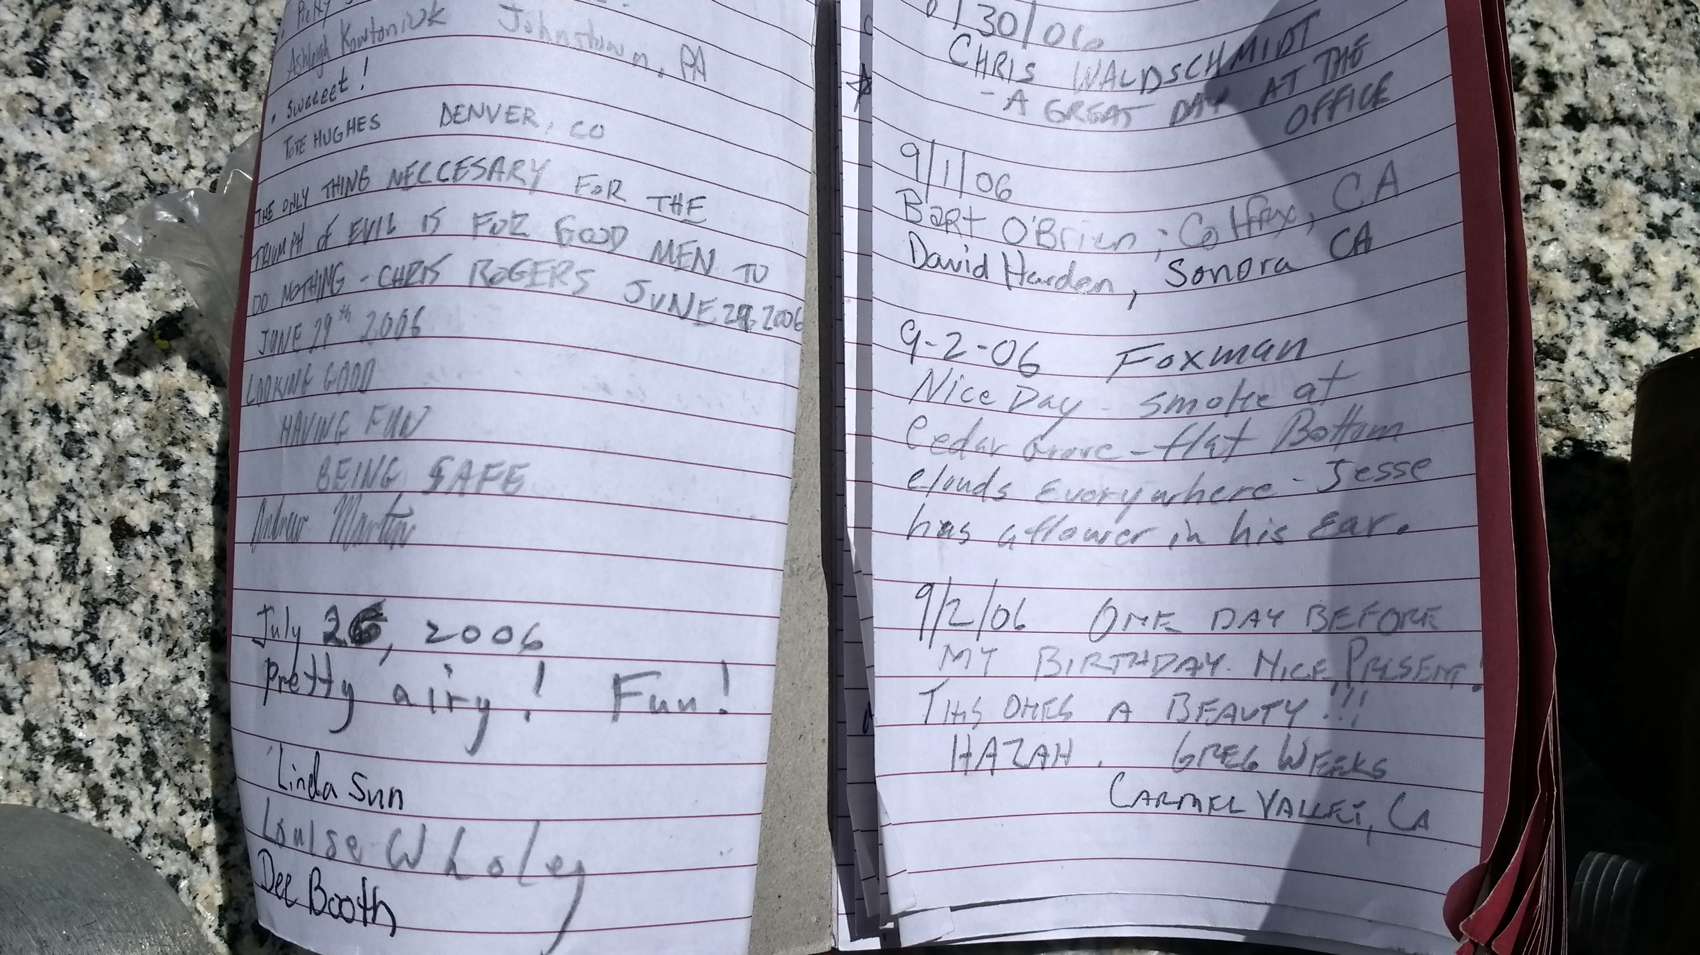 Ashleigh Kowtoniuk Johnstown, PA
. Swaeet!
HUGHES DENVER, CO
THE ONLY THING NECCESARY FOR THE
TRIUMPH of EVIL IS FOR GOOD MEN TO
DO NOTHING - CHRIS ROGERS JUNE 29, 2006
JUNE 29th 2006
LOOKING GOOD
HAVING FUN
BEING SAFE
Andrew Martin
July 26, 2006
pretty airy! Fun!
Linda Sun
Louise Wholey
Dee Booth
/30/06
CHRIS WALDSCHMIDT
- A GREAT DAY AT THE
OFFICE
9/1/06
Bart O'Brien; Colfax, CA
David Harden, Sonora CA
9-2-06 Foxman
Nice Day - Smoke at
Cedar Grove - flat Bottom
clouds Everywhere - Jesse
has a flower in his Ear.
9/2/06 ONE DAY BEFORE
MY BIRTHDAY. NICE PRESENT!
THIS ONES A BEAUTY!!!
HAZAH. GREG WEEKS
CARMEL VALLEY, CA